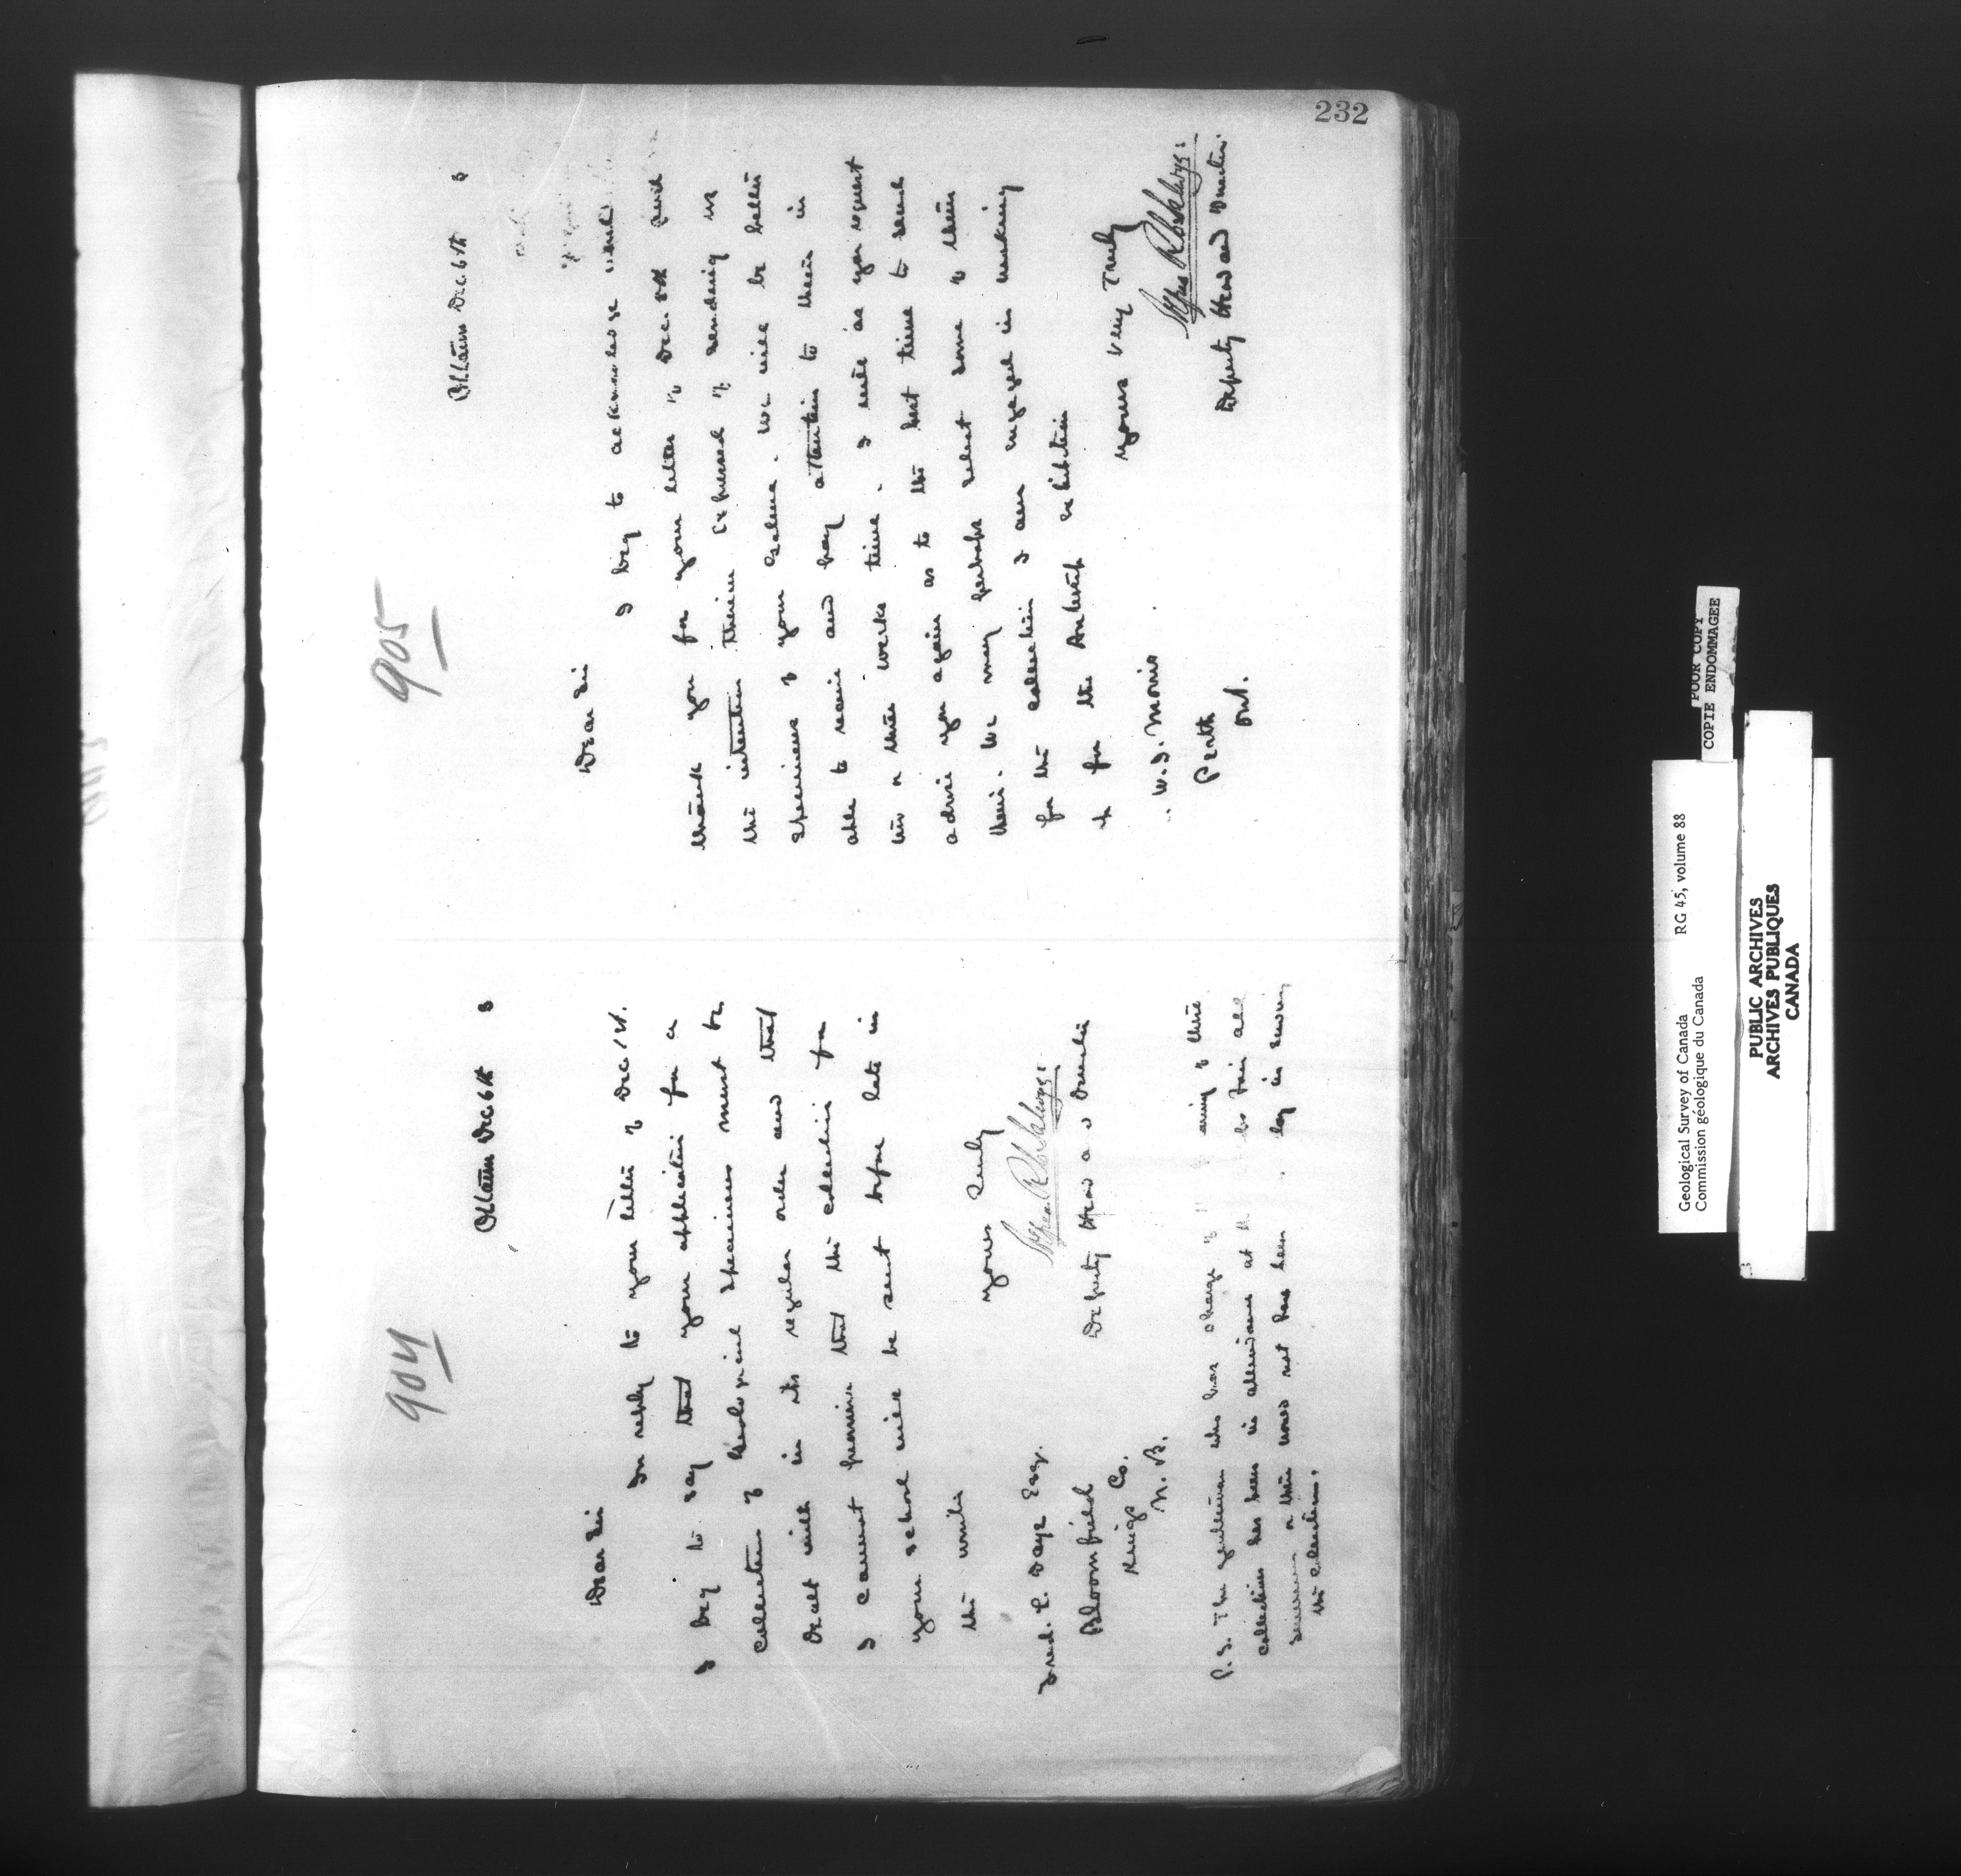 232
904
Ottawa Dec. 6th 8
Dear Sir
In reply to your letter of Dec 1st.
I beg to say that your application for a
collection of Geological specimens must be
dealt with in its regular order and that
I cannot promise that the collection for
your school will be sent before late in
the winter
yours truly
Deputy Head and Director
Fred. E. Daye Esq.
Bloomfield
Kings Co.
N. B.
P.S. The gentleman who has charge of
collections has been in attendance at
or this would not have been
the collections.
905
Ottawa Dec. 6th 8
Dear Sir
I beg to acknowledge and
thank you for your letter of Dec. 5th and
the intention therein expressed of sending us
specimens of your Galena. We will be better
able to receive and pay attention to them in
two or three weeks time. I will as you request
advise you again as to the best time to send
them. We may perhaps select some of them
for the collection I am engaged in making
up for the Antwerp exhibition
yours very truly
Deputy Head and Director.
W. J. Morris
Perth
Ont.
POOR COPY
COPIE ENDOMMAGEE
Geological Survey of Canada RG 45, volume 88
Commission géologique du Canada
PUBLIC ARCHIVES
ARCHIVES PUBLIQUES
CANADA